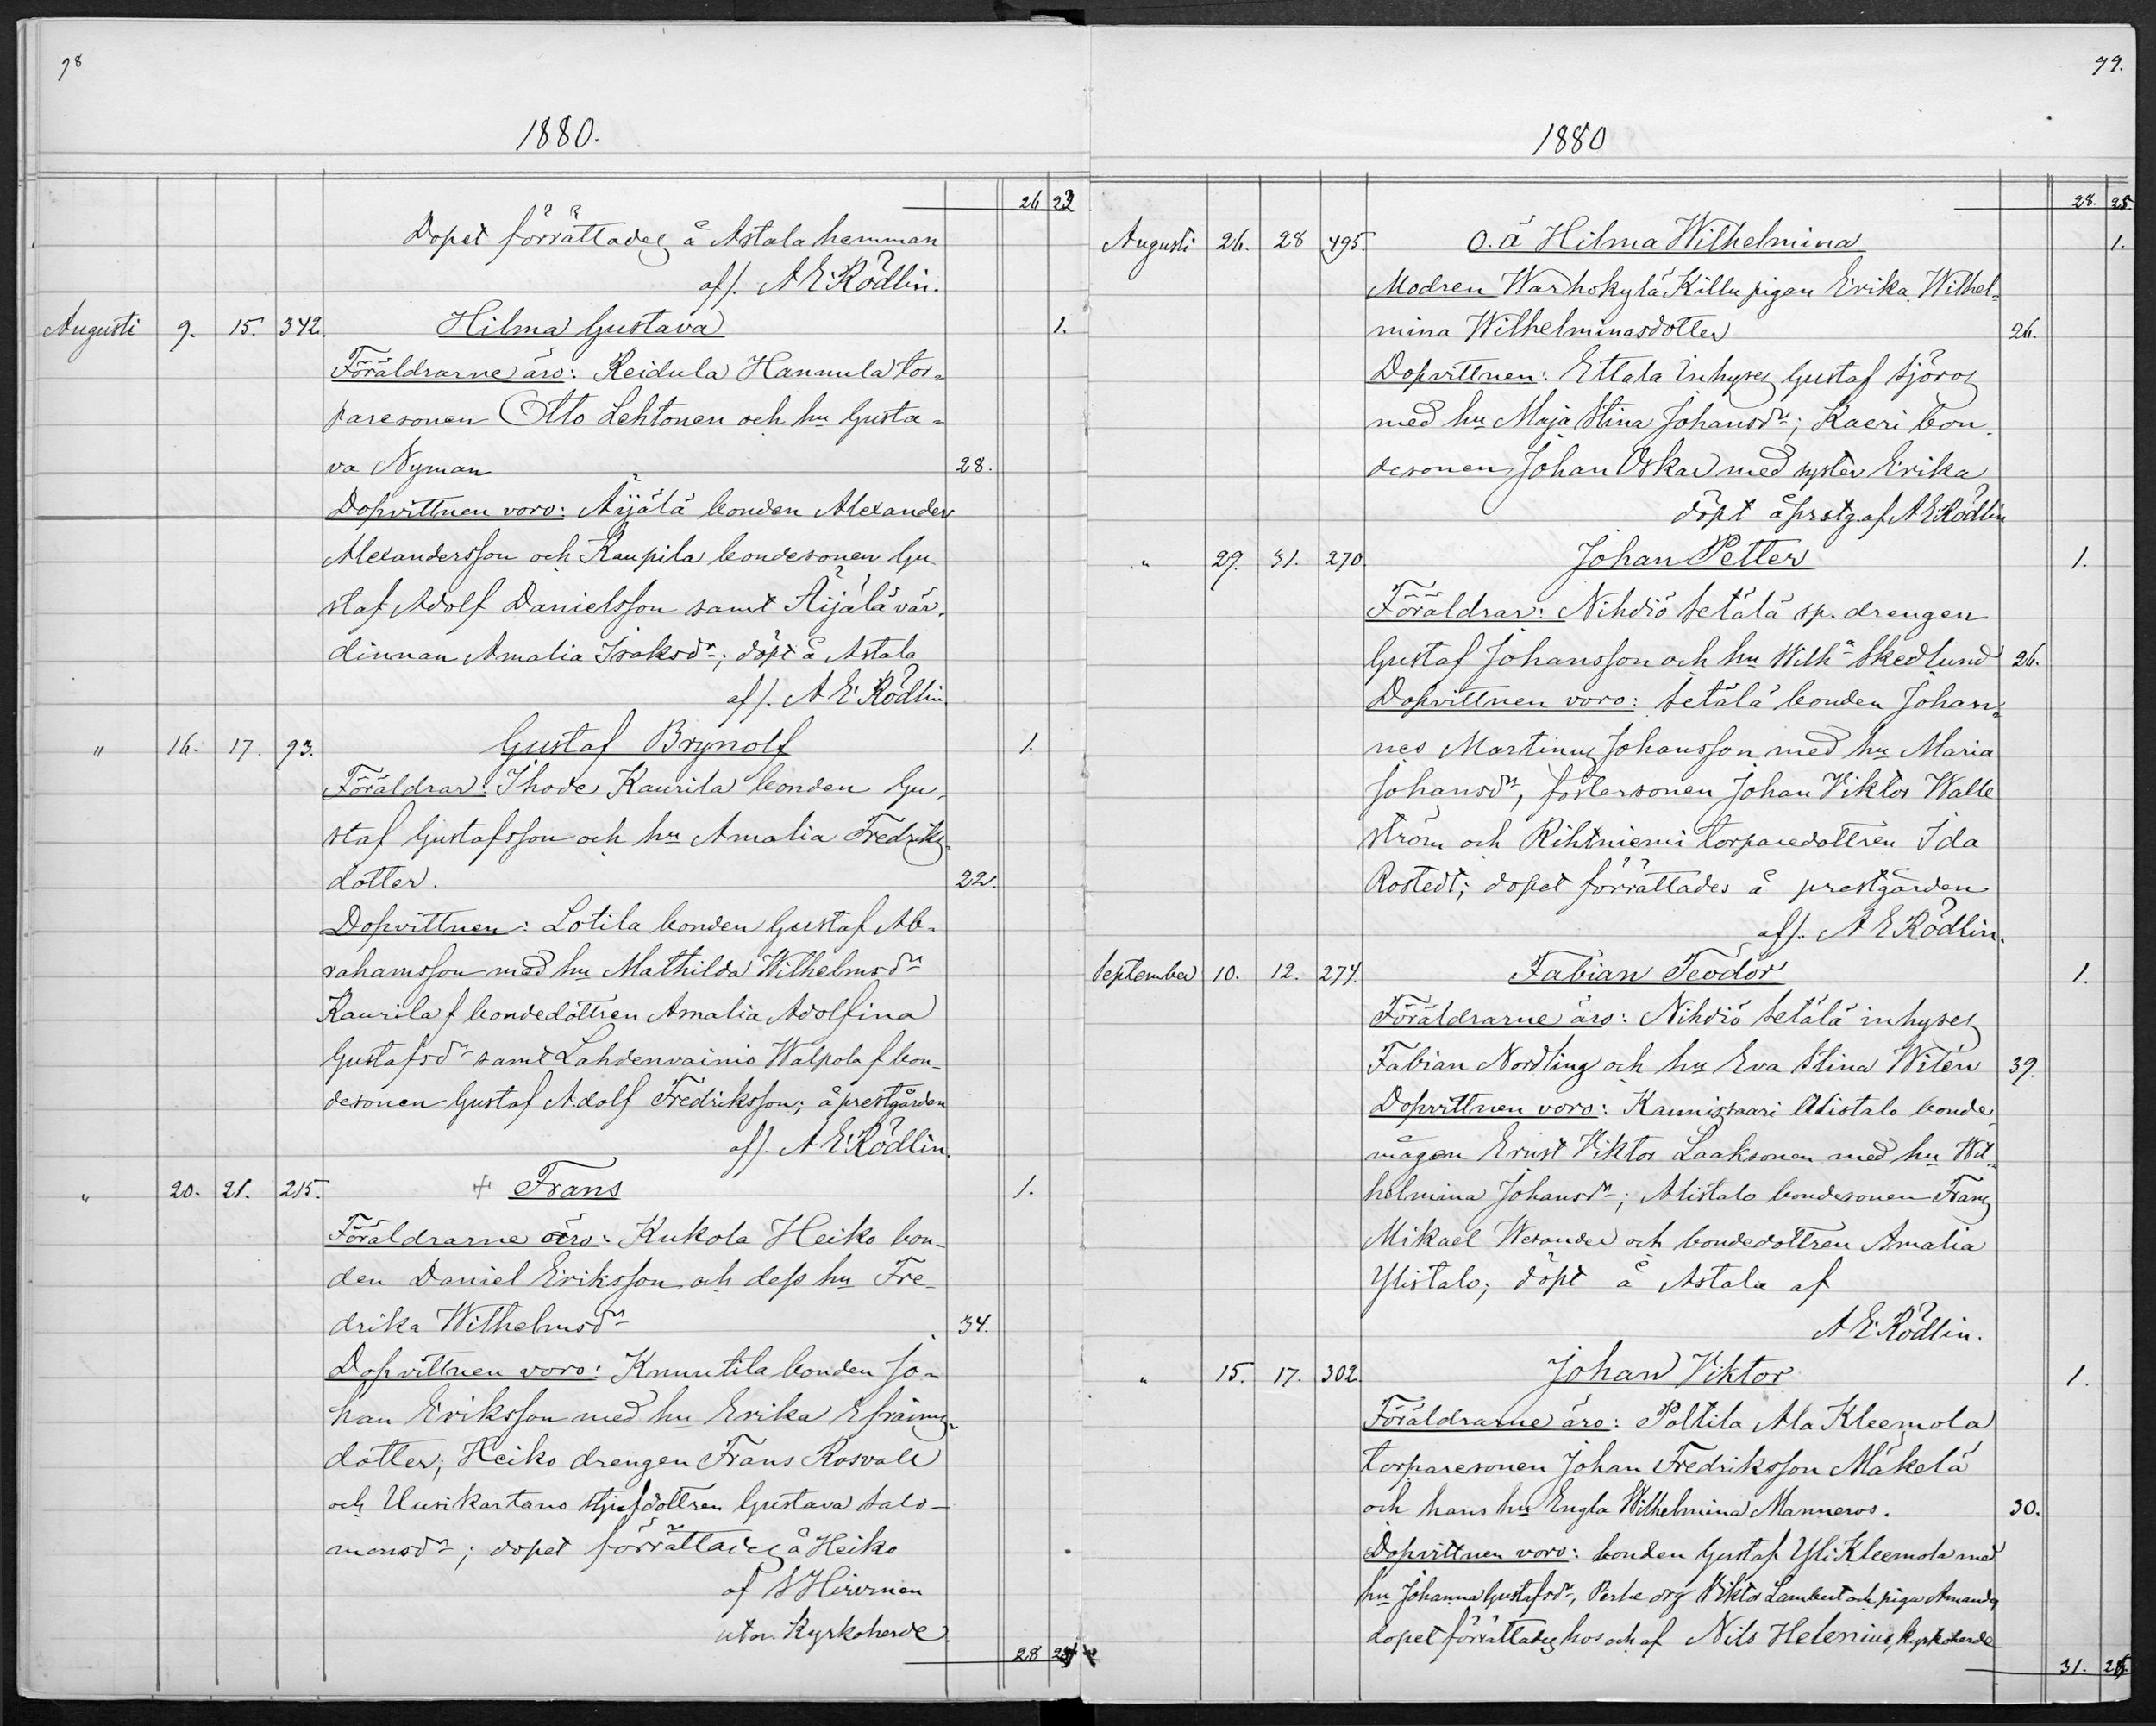 98
1880.
26 23
Dopet förrättades å Astala hemman
af/. A E Rödlin.
Augusti 9. 15. 342. Hilma Gustava 1.
Föräldrarne äro: Reidula Hannula tor-
paresonen Otto Lehtonen och hu Gusta-
va Nyman 28.
Dopvittnen voro: Äijälä bonden Alexander
Alexandersson och Kaupila bondesonen Gu
staf Adolf Danielsson samt Äijälä vär-
dinnan Amalia Isaksdr; döpt å Astala
af/. A E Rödlin
" 16. 17. 93. Gustaf Brynolf 1.
Föräldrar: Ihode Kaurila bonden Gu-
staf Gustafsson och hu Amalia Fredriks-
dotter. 22.
Dopvittnen: Lotila bonden Gustaf Ab-
rahamsson med hu Mathilda Wilhelmsdr
Kaurila f bondedottren Amalia Adolfina
Gustafsdr samt Lahdenvainio Walpola f bon-
desonen Gustaf Adolf Fredriksson; å prestgården
af/. A E Rödlin.
" 20. 21. 215. + Frans 1.
Föräldrarne äro: Kukola Heiko bon-
den Daniel Eriksson och dess hu Fre-
drika Wilhelmsdr 34.
Dopvittnen voro: Knuutila bonden Jo-
han Eriksson med hu Erika Efraims-
dotter; Heiko drengen Frans Rosvall
och Uusikartano styfdottren Gustava Salo-
monsdr; dopet förrättades å Heiko
af Hirvinen
utn. Kyrkoherde
28 24
99.
1880
28. 25.
Augusti 26. 28 495. O.ä Hilma Wilhelmina 1.
Modren Warhokylä Killu pigan Erika Wilhel-
mina Wilhelminasdotter 26.
Dopvittnen: Ettala Inhyses Gustaf Sjöros
med hu Maja Stina Johansdr; Kaeri bon-
desonen Johan Oskar med syster Erika
döpt å prstg. af. A E Rödlin
" 29. 31. 270. Johan Petter 1.
Föräldrar: Nihdiö Setälä sp. drengen
Gustaf Johansson och hu Wilha Skedlund 26.
Dopvittnen voro: Setälä bonden Johan-
nes Martinus Johansson med hu Maria
Johansdr, fostersonen Johan Viktor Walle
ström och Rihtniemi torparedottren Ida
Rostedt; dopet förrättades å prestgården
af/. A E Rödlin.
September 10. 12. 274. Fabian Teodor 1.
Föräldrarne äro: Nihdiö Setälä inhyses
Fabian Nordling och hu Eva Stina Witén 39.
Dopvittnen voro: Kaunissaari Alistalo bonde
mågen Ernst Viktor Laaksonen med hu Wil-
helmina Johansdr; Alistalo bondesonen Frans
Mikael Wesander och bondedottren Amalia
Ylistalo; döpt å Astala af
A E Rödlin.
" 15. 17. 302. Johan Viktor 1.
Föräldrarne äro: Poltila Ala Kleemola
torparesonen Johan Fredriksson Mäkelä
och hans hu Engla Wilhelmina Manneros. 30.
Dopvittnen voro: bonden Gustaf Yli Kleemola med
hu Johanna Gustafsdr, Perhe drg Viktor Lambert och piga Amanda
dopet förrättades hos och af Nils Helenius, Kyrkoherde
31. 26.